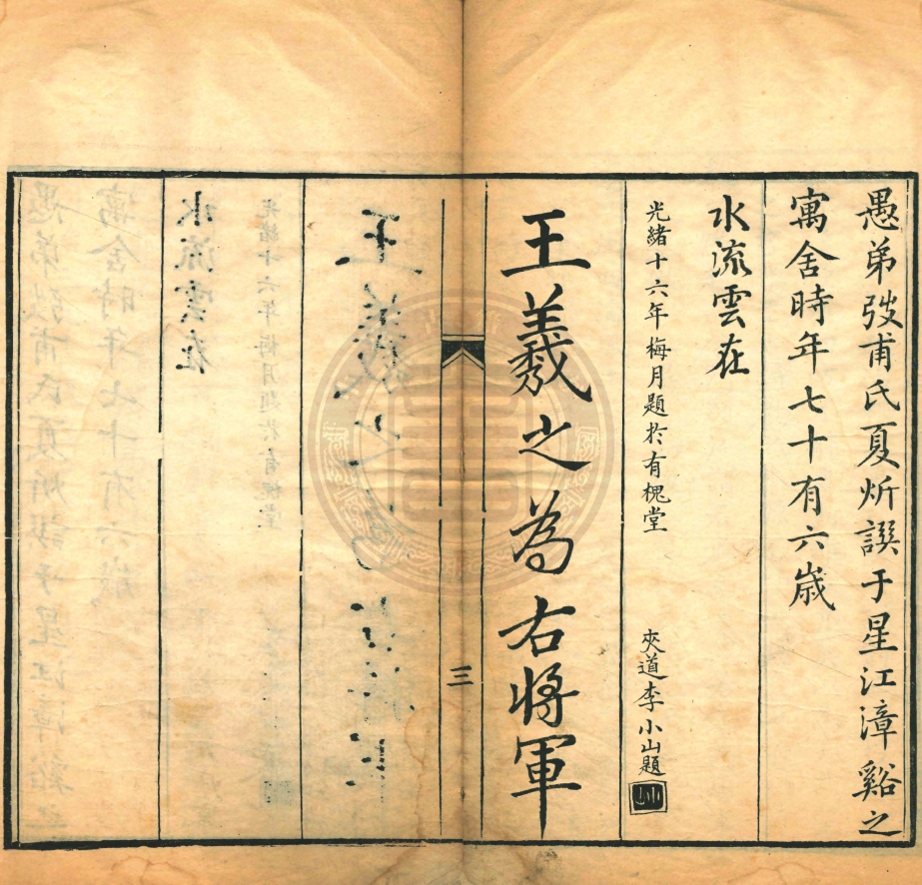 愚弟弢甫氏夏炘譔于星江漳谿之
寓舍時年七十有六歲
水流雲在
光緒十六年梅月題於有槐堂
夾道李小山題
王羲之為右將軍
三